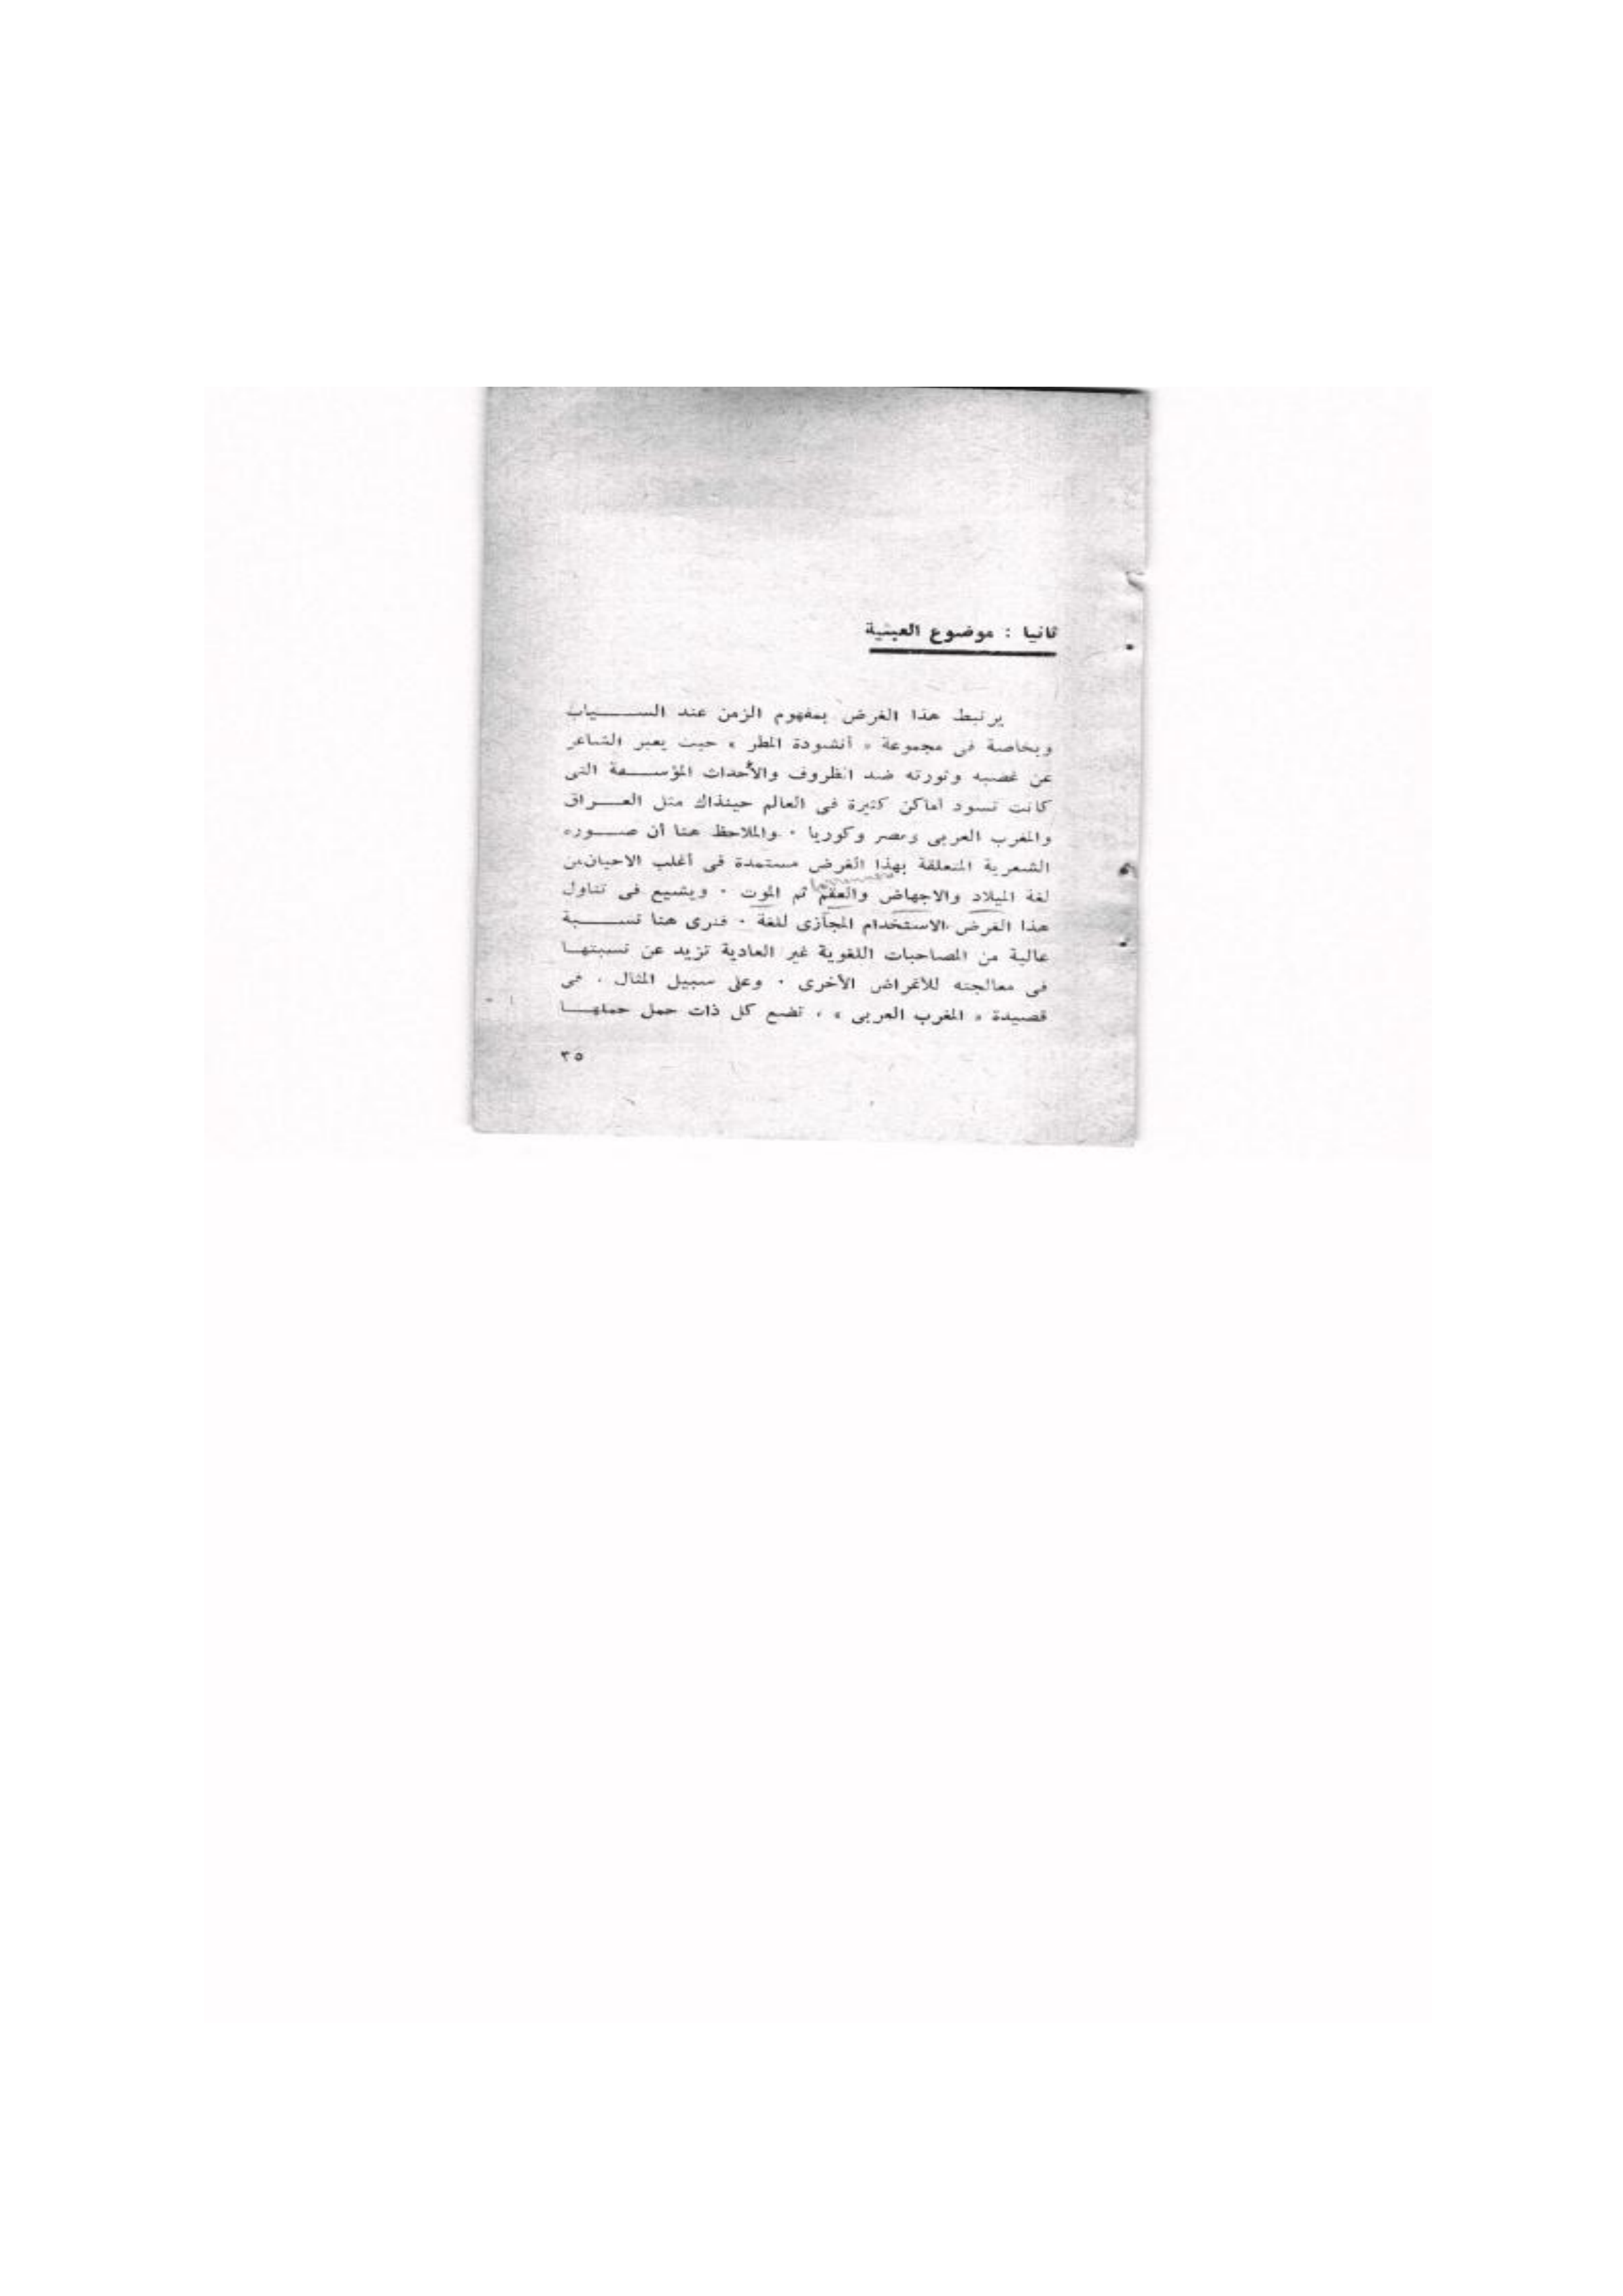 ثانيا : موضوع العبثية
يرتبط هذا الغرض بمفهوم الزمن عند الســـياب
وبخاصة فى مجموعة « أنشودة المطر » حيث يعبر الشاعر
عن غضبه وثورته ضد الظروف والأحداث المؤســـفة التى
كانت تسود أماكن كثيرة فى العالم حينذاك مثل العـــراق
والمغرب العربى ومصر وكوريا ٠ والملاحظ هنا أن صـــوره
الشعرية المتعلقة بهذا الغرض مستمدة فى أغلب الاحيان من
لغة الميلاد والاجهاض والعقم ثم الموت ٠ ويشيع فى تناول
هذا الغرض الاستخدام المجازى للغة ٠ فنرى هنا نســـبة
عالية من المصاحبات اللغوية غير العادية تزيد عن نسبتهـا
فى معالجته للأغراض الأخرى ٠ وعلى سبيل المثال ، فى
قصيدة « المغرب العربى » ، تضع كل ذات حمل حملهـــا
٣٥